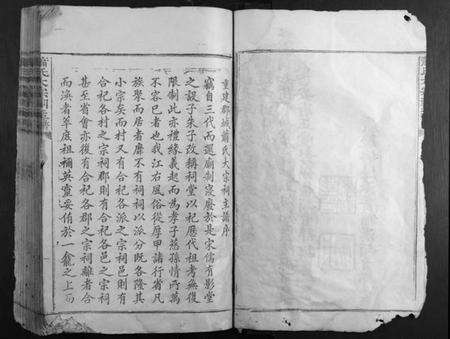 重建郡城蕭氏大宗祠主譜序
竊自三代而還廟制寖廢於是宋儒有影堂
之設子朱子改稱祠堂以祀歷代祖考無復
限制此亦禮緣義起而為孝子慈孫情所萬
不容已者也我江右風俗從厚甲諸行省凡
族聚而居者靡不有祠祠以派分既各隆其
小宗矣而村又有合祀各派之宗祠邑則有
合祀各村之宗祠郡則有合祀各邑之宗祠
甚至省會亦復有合祀各郡之宗祠離者合
而渙者萃底祖禰英靈妥侑於一龕之上而